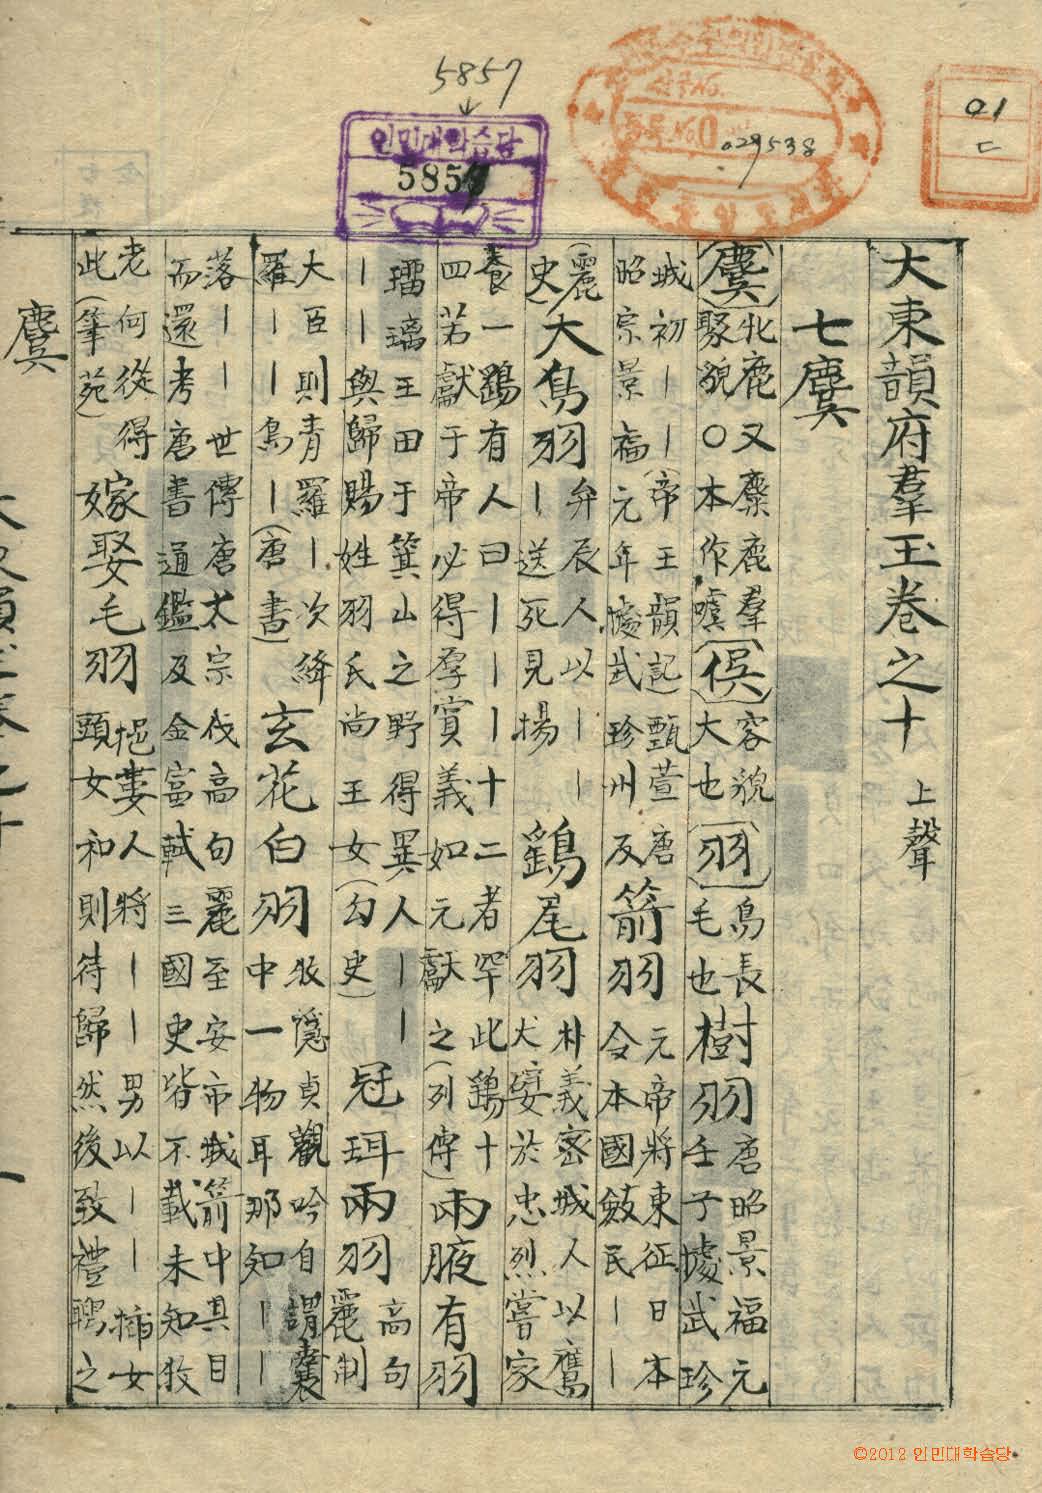 5857
인민대학습당
5857
등록 No 029538
01
ㄷ
大東韻府羣玉卷之十 上聲
七麌
(麌) 牝鹿又麋鹿羣聚貌〇本作噳 (俁) 容貌大也 (羽) 鳥長毛也 樹羽 唐昭景福元壬子據武珍
城初｜｜(帝王韻記)甄萱唐昭宗景福元年據武珍州反 箭羽 元帝將東征日本令本國斂民｜｜
(麗史) 大鳥羽 弁辰人以｜｜｜送死見揚 鷄尾羽 朴義密城人以鷹犬嬖於忠烈嘗家
養一鷄有人曰｜｜｜十二者罕此鷄十四若獻于帝必得厚賞義如元獻之(列傳) 兩腋有羽
瑠璃王田于箕山之野得異人｜｜｜｜與歸賜姓羽氏尚王女(勾史) 冠珥兩羽 高句麗制
大臣則青羅｜次絳羅｜｜鳥｜(唐書) 玄花白羽 牧隱貞觀吟自謂囊中一物耳那知｜｜
落｜｜世傳唐太宗伐高句麗至安市城箭中其目而還考唐書通鑑及金富軾三國史皆不載未知牧
老何從得此(筆苑) 嫁娶毛羽 挹婁人將｜｜男以｜｜揷女頭女和則待歸然後致禮聘之
麌
©2012 인민대학습당